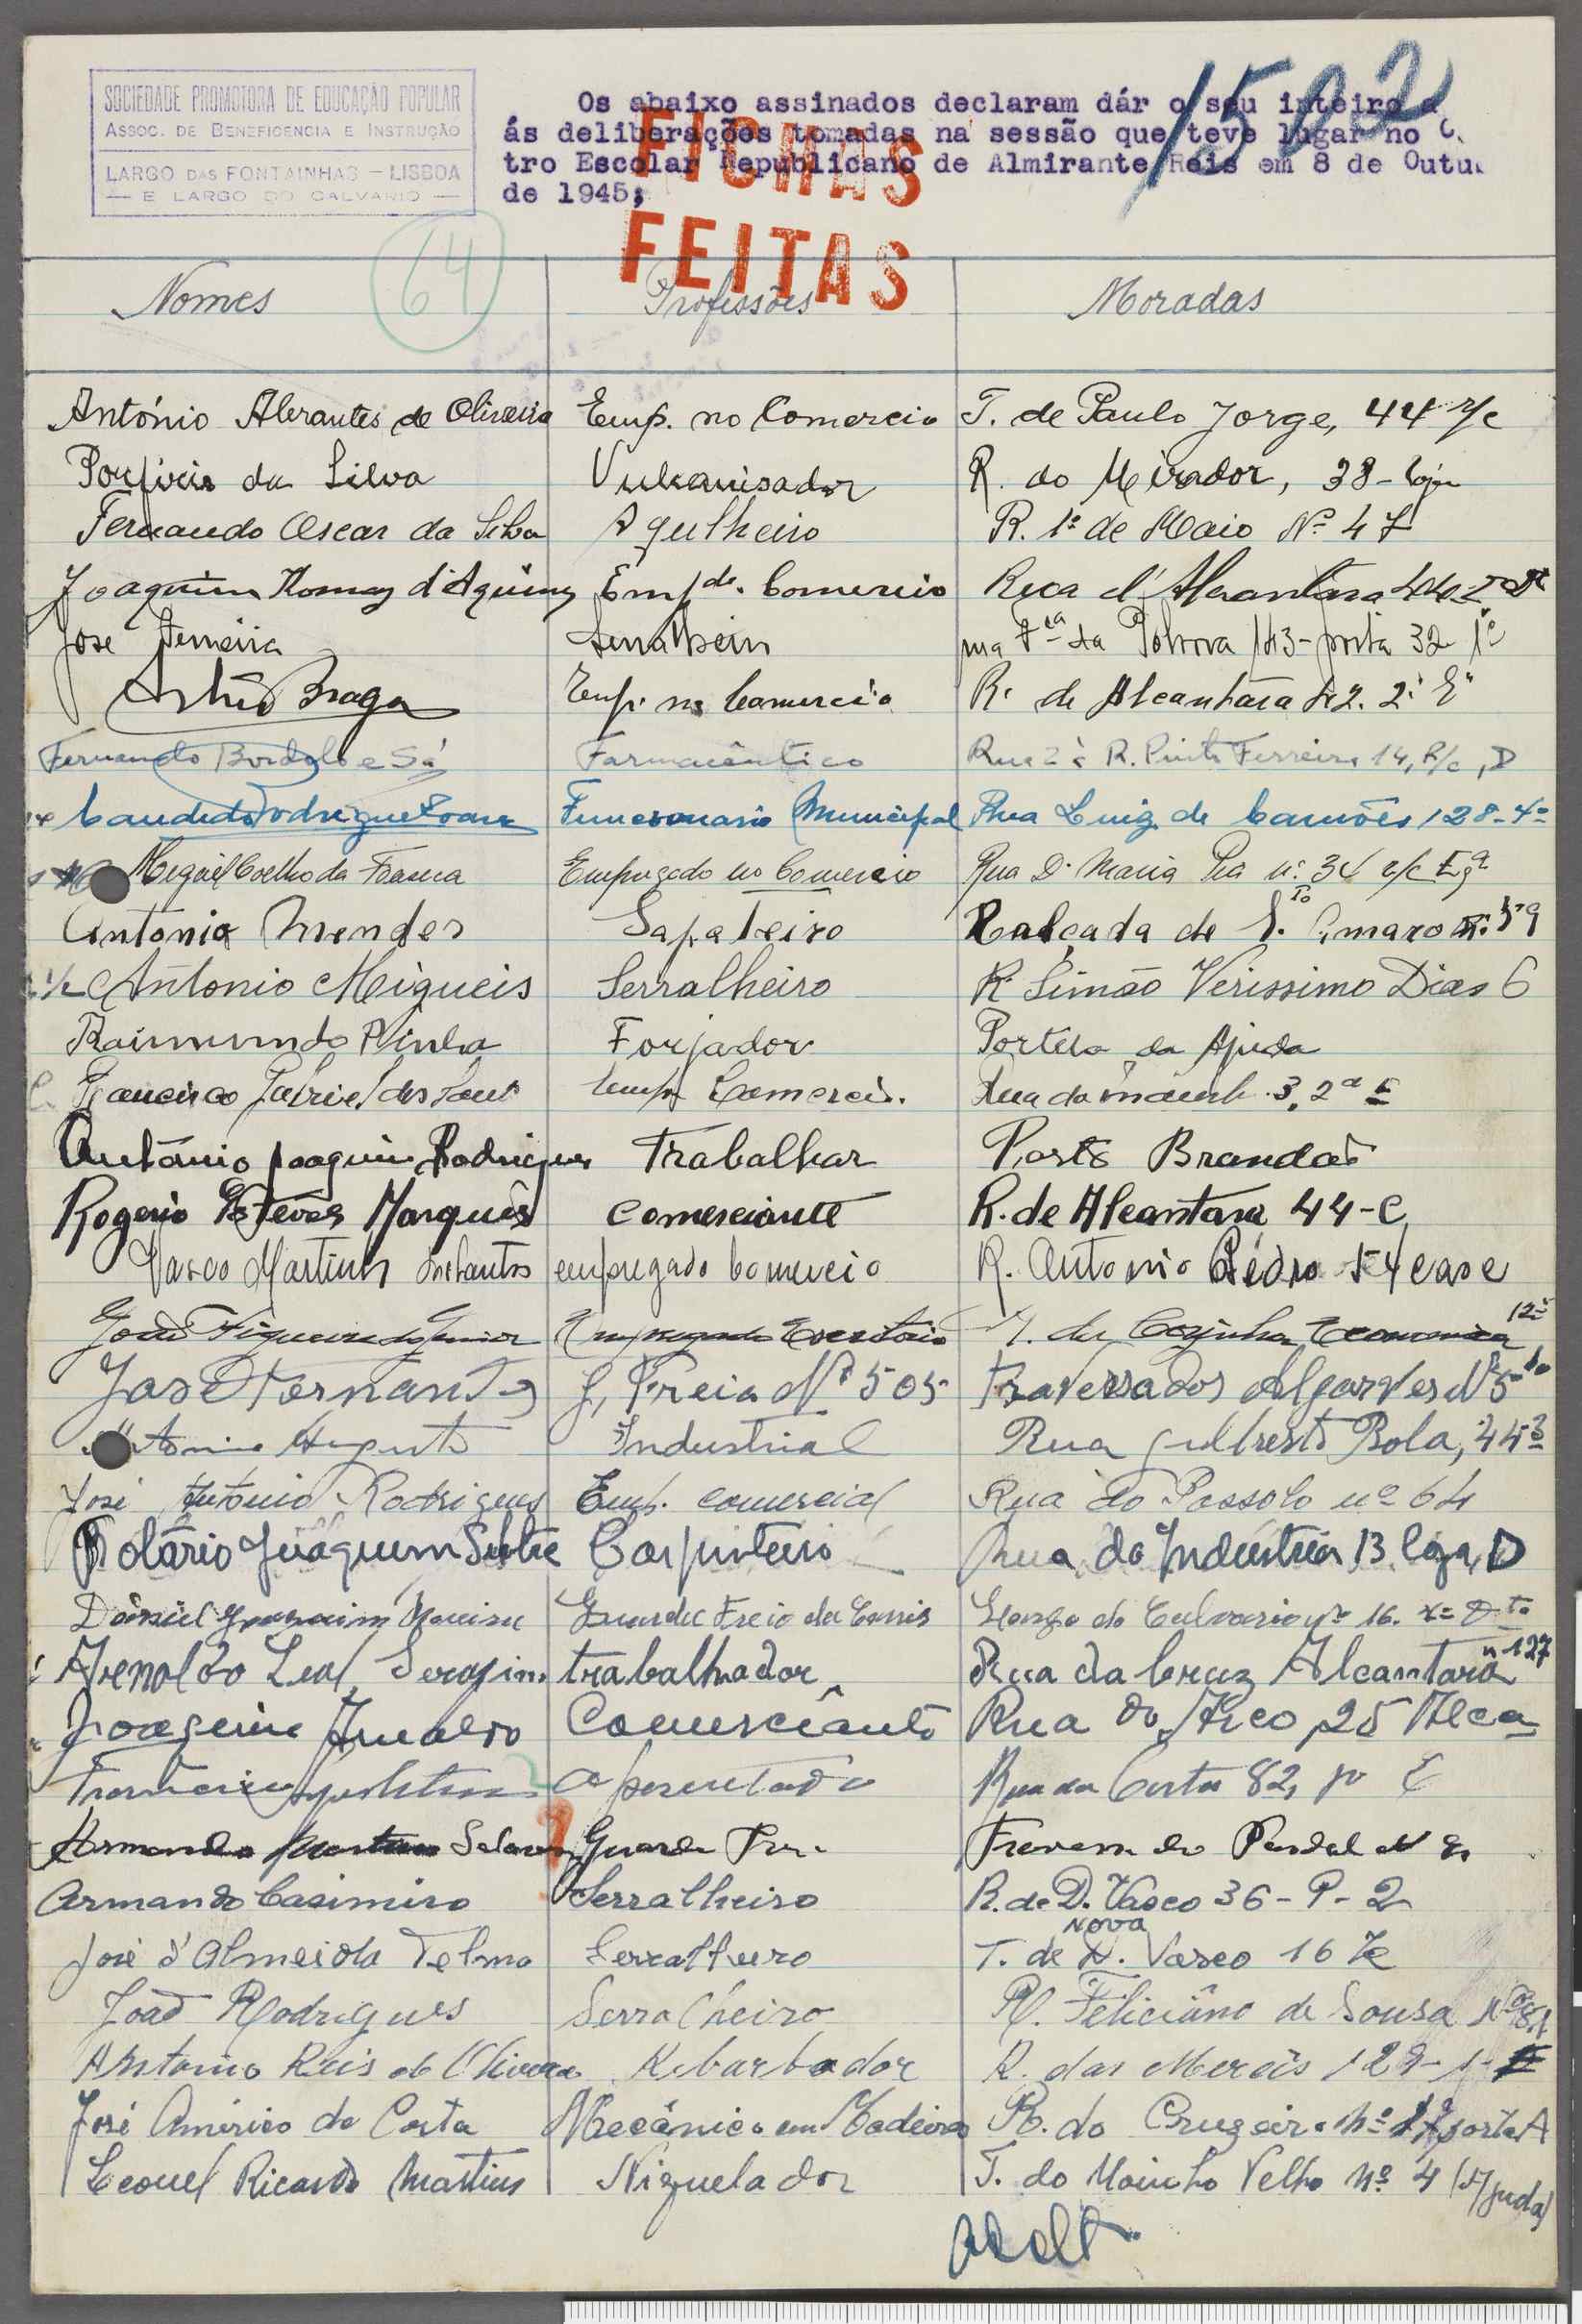 SOCIEDADE PROMOTORA DE EDUCAÇÃO POPULAR
ASSOC. DE BENEFICENCIA E INSTRUÇÃO
LARGO DAS FONTAINHAS - LISBOA
- E LARGO DO CALVARIO -
1502
Os abaixo assinados declaram dár o seu inteiro a
ás deliberações tomadas na sessão que teve lugar no C
tro Escolar Republicano de Almirante Reis em 8 de Outu
de 1945;
FICHAS
FEITAS
64
Nomes Profissões Moradas
António Abrantes de Oliveira Emp. no Comercio T. de Paulo Jorge, 44 r/c
Porfirio da Silva Vulcanisador R. do Mirador, 38 - loja
Fernando Oscar da Silva Agulheiro R. 1º de Maio Nº 47
Joaquim Thomaz d'Aquino Emp do Comercio Rua d'Alcantara
José Ferreira Serralheiro rua da Polvora 143 - porta 32 1º
Artur Braga Emp. no Comercio R. de Alcantara 42. 2º Eº
Fernando Bordalo e Sá Farmacêutico Rua 2 à R. Pinto Ferreira 14, R/c, D
Candido Rodrigues Funcionario Municipal Rua Luiz de Camões 128-4º
Miguel Coelho da Fonseca Empregado no Comercio Rua D. Maria Pia nº 34 r/c Esqª
Antonio Mendes Sapateiro Calçada de Sto Amaro
Antonio Migueis Serralheiro R Simão Verissimo Dias 6
Raimundo Pinha Forjador Portela da Ajuda
Francisco Gabriel dos Comercio. Rua da 3, 2º E
António Joaquim Rodrigues Trabalhar Porto Brandão
Rogerio Esteves Marques Comerciante R. de Alcantara 44-C
Vasco Martins dos Santos empregado Comercio R. Antonio Pédro 54 case
João Figueiredo Junior Empregado Escritório T. da Cozinha Economica 12
José Fernandes G, Freio Nº 505 Travessa dos Algarves Nº 5
Antonio Augusto Industrial Rua Gilberto Rola, 44
José António Rodrigues Emp. comercial Rua do Possolo nº 64
Rotário Juaquim Carpinteiro Rua da Indústria 13 loja, D
Daniel Joaquim Guarda Freio da Carris Largo do Calvario nº 16. Dto
Arenoldo Leal Serafim trabalhador Rua da Cruz Alcantara nº 127
Joaquim Arnaldo Comerciante Rua do Arco 25 Alca
Aposentado Rua da Costa 82, E
Armando Guarda Travessa do Pardal
Armando Casimiro Serralheiro R. de D. Vasco 36 - P - 2
José d'Almeida Telmo Serralheiro T. Nova de D. Vasco 16
João Rodrigues Serralheiro R. Feliciano de Sousa Nº
Antonio Reis de Oliveira Rebarbador R. das Mercês 129-1-
José Américo da Costa Mecânico em Madeiras R. do Cruzeiro Nº 17 porta A
Leonel Ricardo Martins Niquelador T. do Moinho Velho Nº 4 (Ajuda)